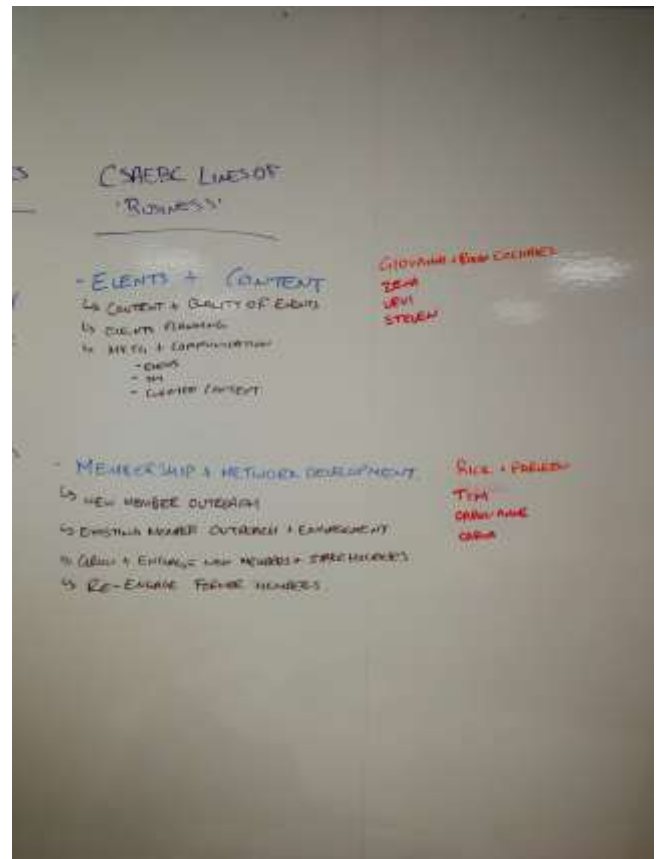 S
CSAEBC LINES OF
'BUSINESS'
- EVENTS + CONTENT
↳ CONTENT + QUALITY OF EVENTS
↳ EVENTS PLANNING
↳ MKTG + COMMUNICATION
- EVENTS
- CURATED CONTENT
GIOVANNA +
ZENA
URVI
STEVEN
- MEMBERSHIP + NETWORK DEVELOPMENT
↳ NEW MEMBER OUTREACH
↳ EXISTING MEMBER OUTREACH + ENGAGEMENT
↳ GROW + ENGAGE NEW MEMBERS + STAKEHOLDERS
↳ RE-ENGAGE FORMER MEMBERS
RICK +
TIM
CAROL-ANNE